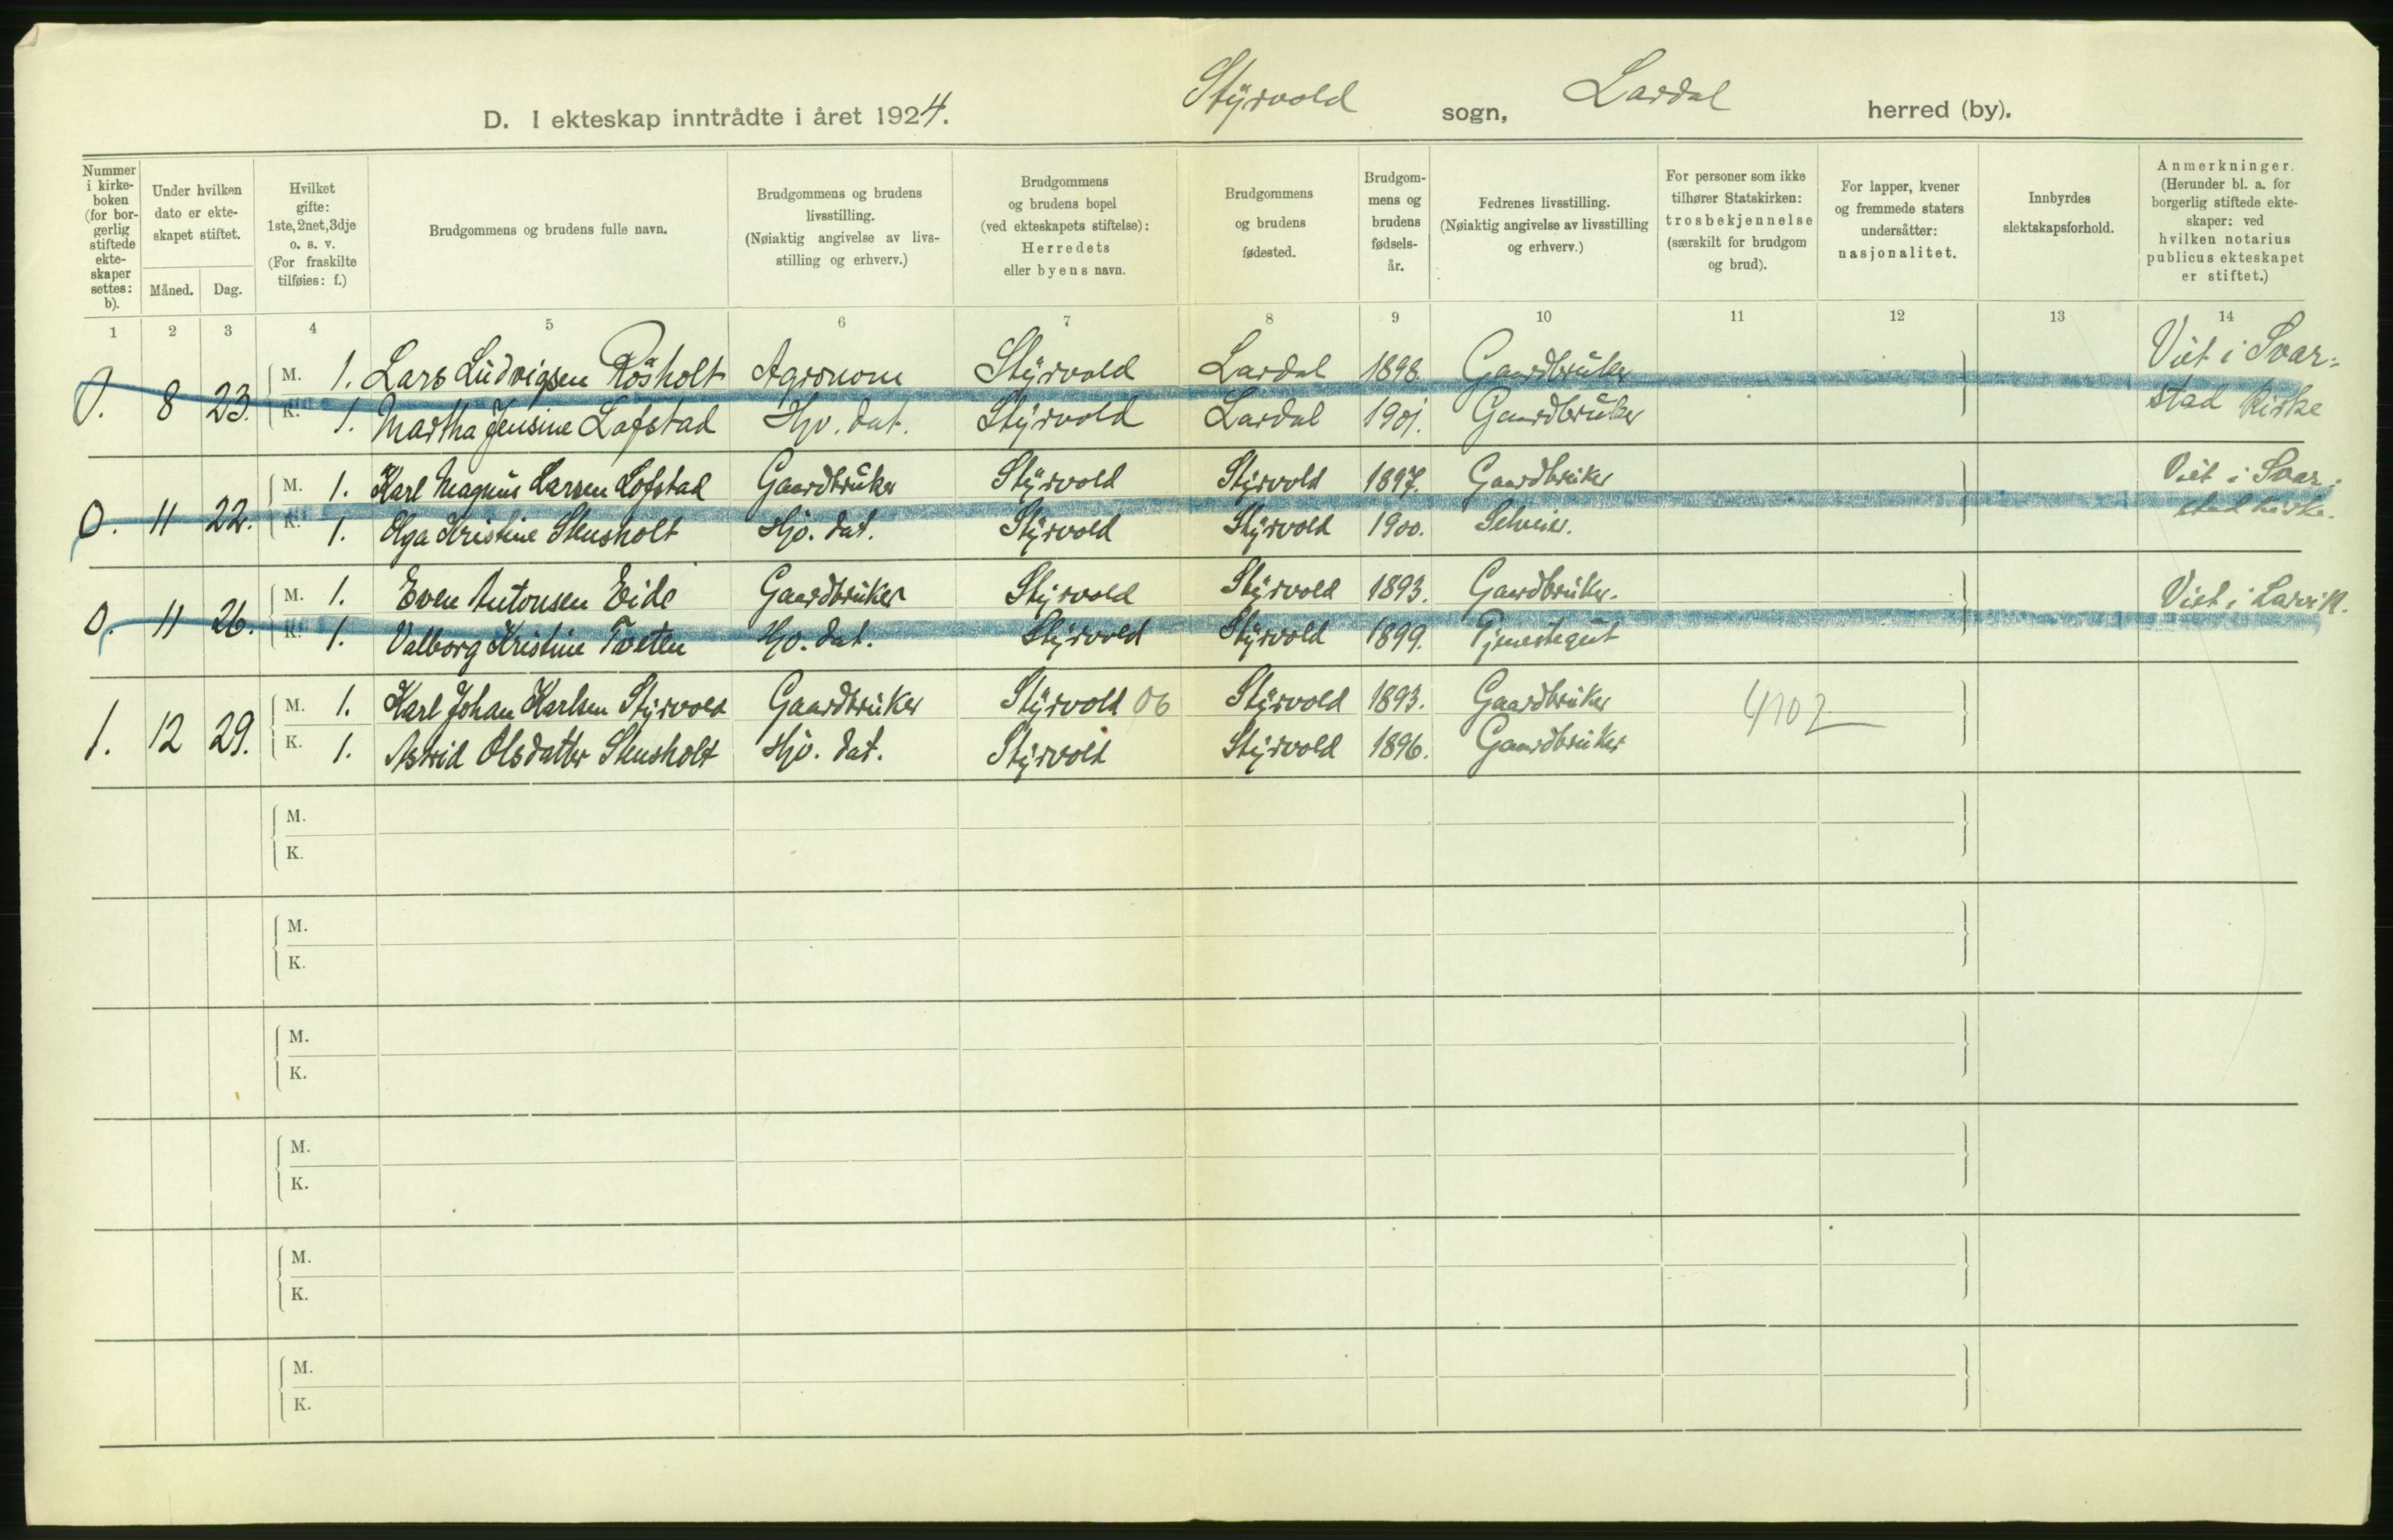 D. I ekteskap inntrådte i året 1924. Styrvold sogn, Lardal herred (by).
Nummer i kirkeboken (for borgerlig stiftede ekteskaper settes: b).
Under hvilken dato er ekteskapet stiftet.
Måned. Dag.
Hvilket gifte: 1ste, 2net, 3dje o. s. v. (For fraskilte tilføies: f.)
Brudgommens og brudens fulle navn.
Brudgommens og brudens livsstilling. (Nøiaktig angivelse av livsstilling og erhverv.)
Brudgommens og brudens bopel (ved ekteskapets stiftelse): Herredets eller byens navn.
Brudgommens og brudens fødested.
Brudgommens og brudens fødselsår.
Fedrenes livsstilling. (Nøiaktig angivelse av livsstilling og erhverv.)
For personer som ikke tilhører Statskirken: trosbekjennelse (særskilt for brudgom og brud).
For lapper, kvener og fremmede staters undersåtter: nasjonalitet.
Innbyrdes slektskapsforhold.
Anmerkninger. (Herunder bl. a. for borgerlig stiftede ekteskaper: ved hvilken notarius publicus ekteskapet er stiftet.)
1 2 3 4 5 6 7 8 9 10 11 12 13 14
M. 1. Lars Ludvigsen Røsholt Agronom Styrvold Lardal 1898. Gaardbruker Viet i Svar-
0. 8 23. K. 1. Martha Jensine Lofstad Hjv. dat. Styrvold Lardal 1901. Gaardbruker stad Kirke
M. 1. Karl Magnus Larsen Lofstad Gaardbruker Styrvold Styrvold 1897. Gaardbruker Viet i Svar-
0. 11 22. K. 1. Olga Kristine Stensholt Hjv. dat. Styrvold Styrvold 1900. Selveier. stad Kirke.
M. 1. Even Antonsen Eide Gaardbruker Styrvold Styrvold 1893. Gaardbruker. Viet i Larvik.
0. 11 26. K. 1. Valborg Kristine Tveten Hjv. dat. Styrvold Styrvold 1899. Tjenestegut
M. 1. Karl Johan Karlsen Styrvold Gaardbruker Styrvold 06 Styrvold 1893. Gaardbruker 4702
1. 12 29. K. 1. Astrid Olsdatter Stensholt Hjv. dat. Styrvold Styrvold 1896. Gaardbruker
M.
K.
M.
K.
M.
K.
M.
K.
M.
K.
M.
K.